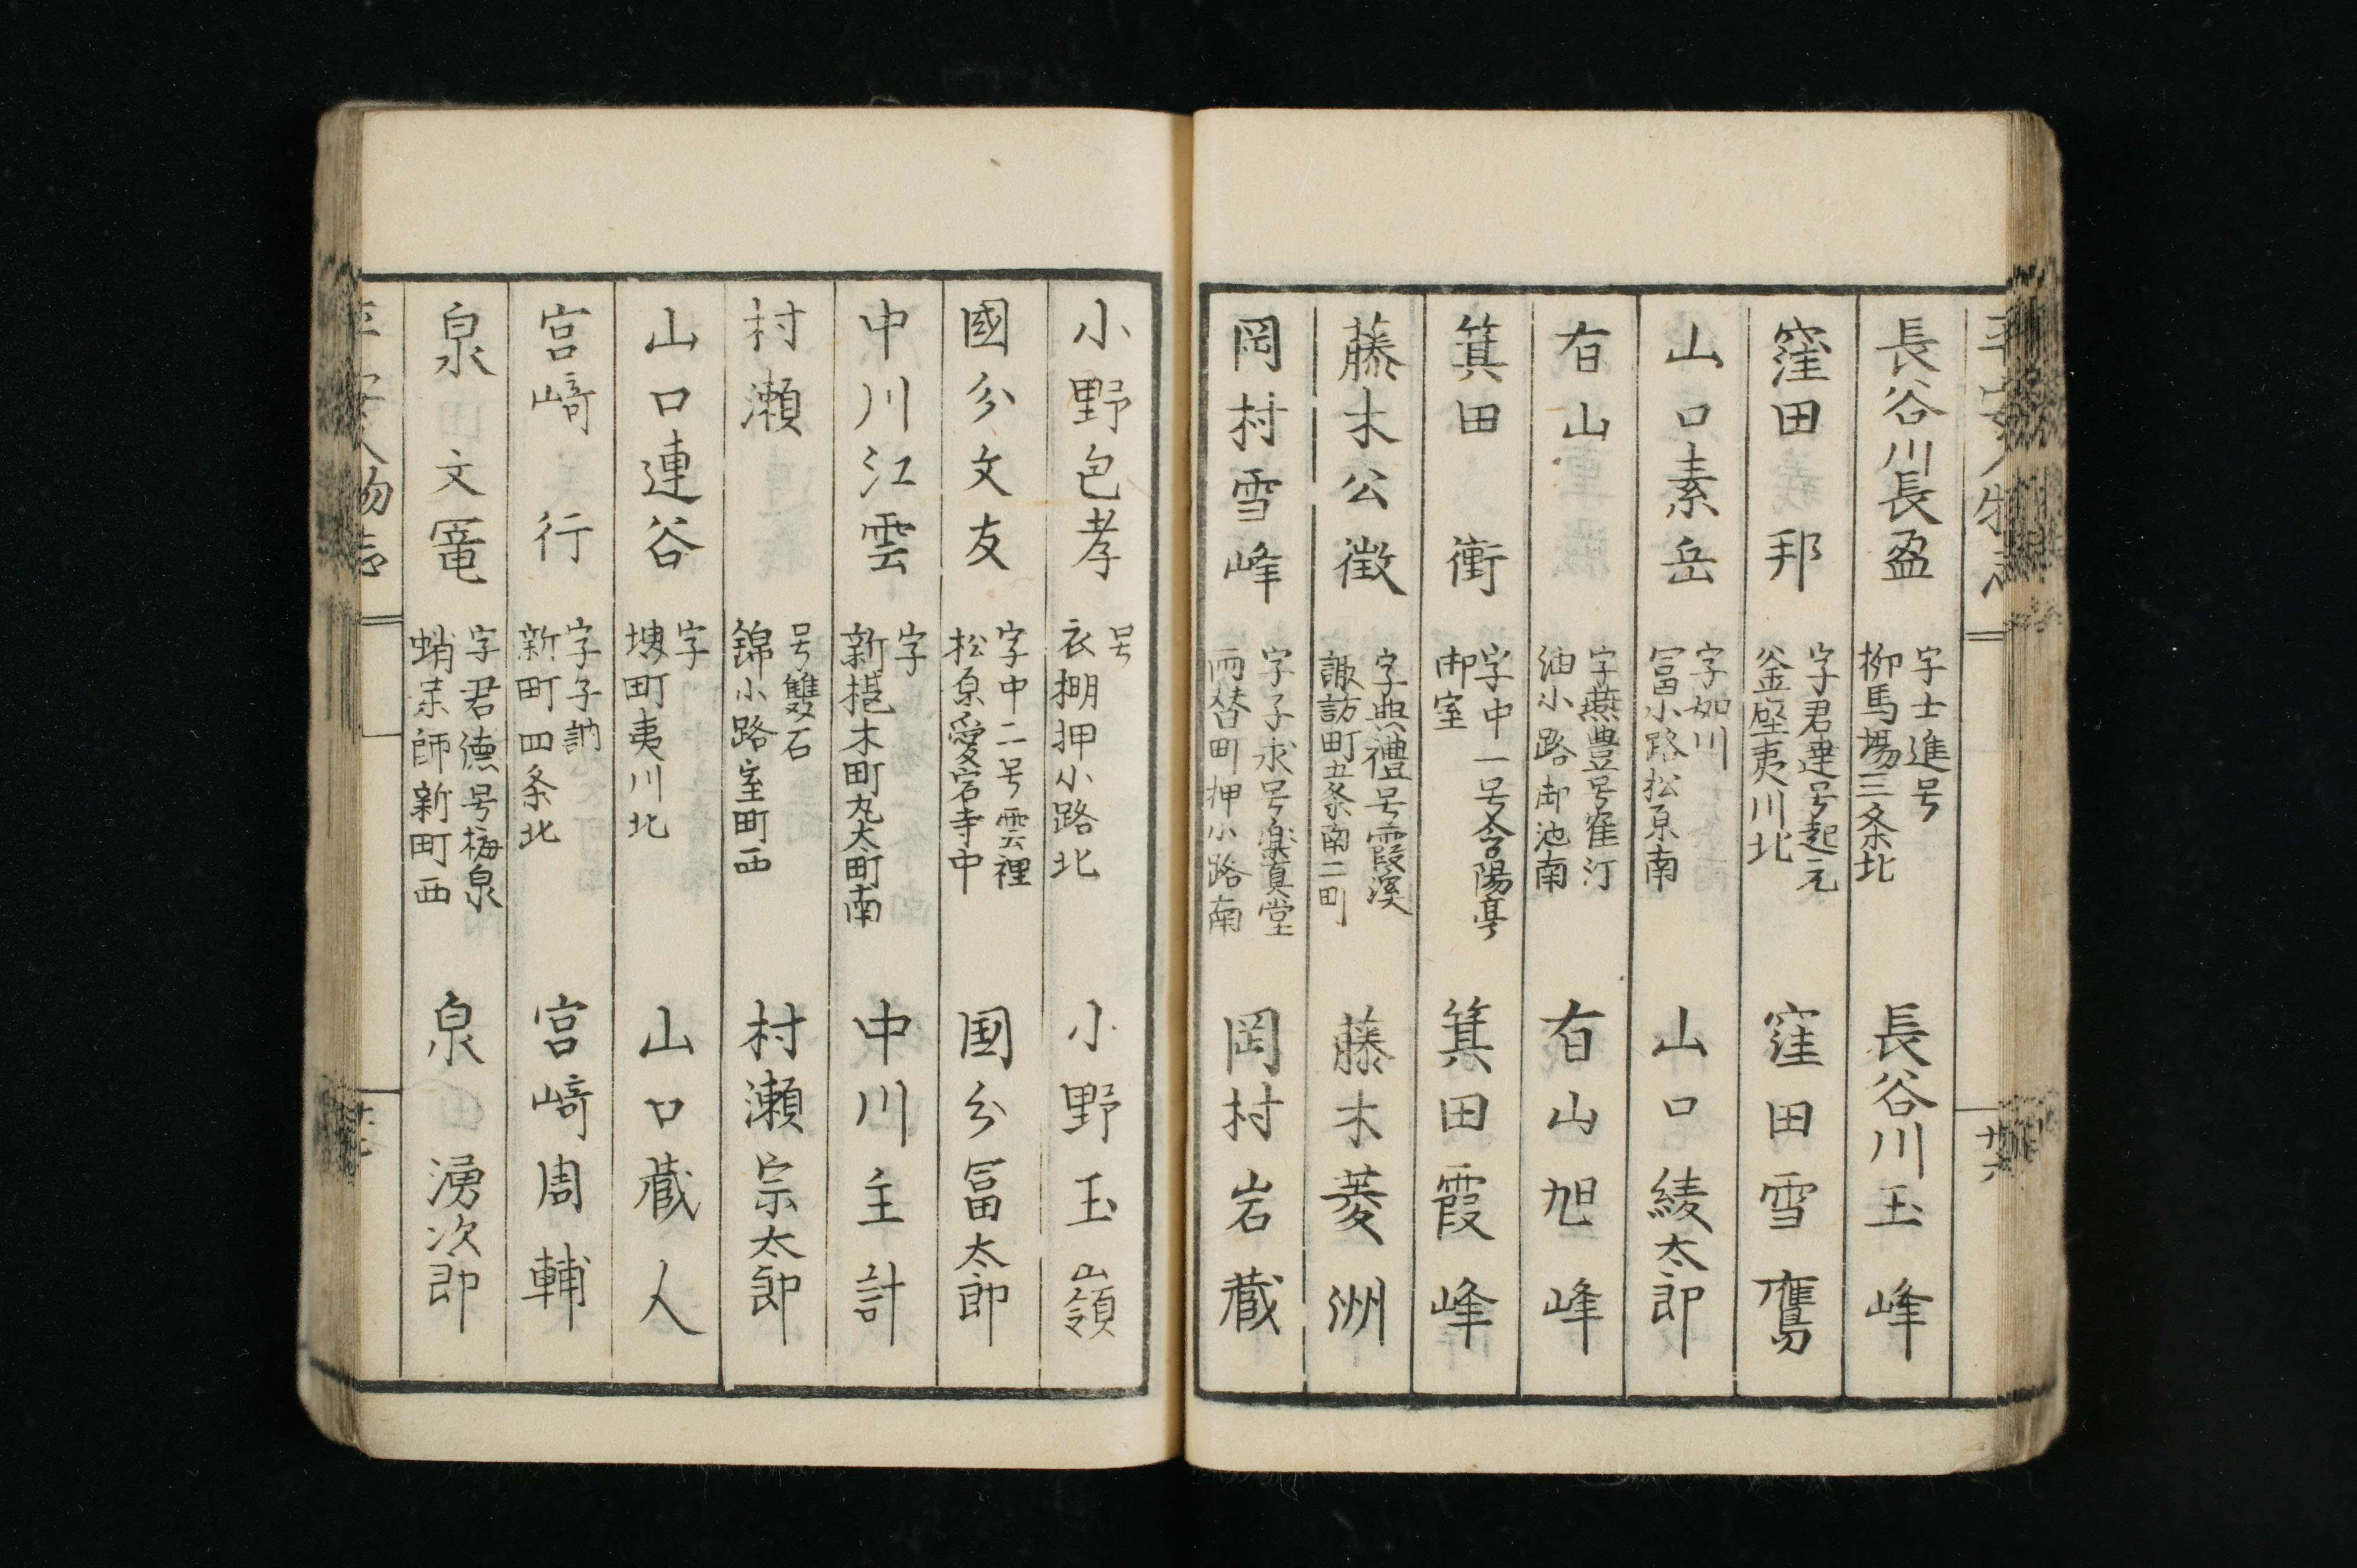 平安人物志
廿六
長谷川長盈
字士進号
柳馬場三条北
長谷川玉峰
窪田邦
字君達号起元
釜座夷川北
窪田雪鷹
山口素岳
字如川
冨小路松原南
山口綾太郎
有山
字燕豊号隺汀
油小路御池南
有山旭峰
箕田衝
字中一号含陽亭
御室
箕田霞峰
藤木公徴
字典禮号霞溪
諏訪町五条南二町
藤木菱洲
岡村雪峰
字子永号樂真堂
両替町押小路南
岡村岩蔵
小野包孝
号
衣棚押小路北
小野玉嶺
國分文友
字中二号雲裡
松原愛宕寺中
国分冨太郎
中川江雲
字
新椹木町丸太町南
中川主計
村瀬
号雙石
錦小路室町西
村瀬宗太郎
山口連谷
字
堺町夷川北
山口蔵人
宮﨑行
字子訥
新町四条北
宮﨑周輔
泉文竜
字君德号梅泉
蛸薬師新町西
泉湧次郎
平安人物志